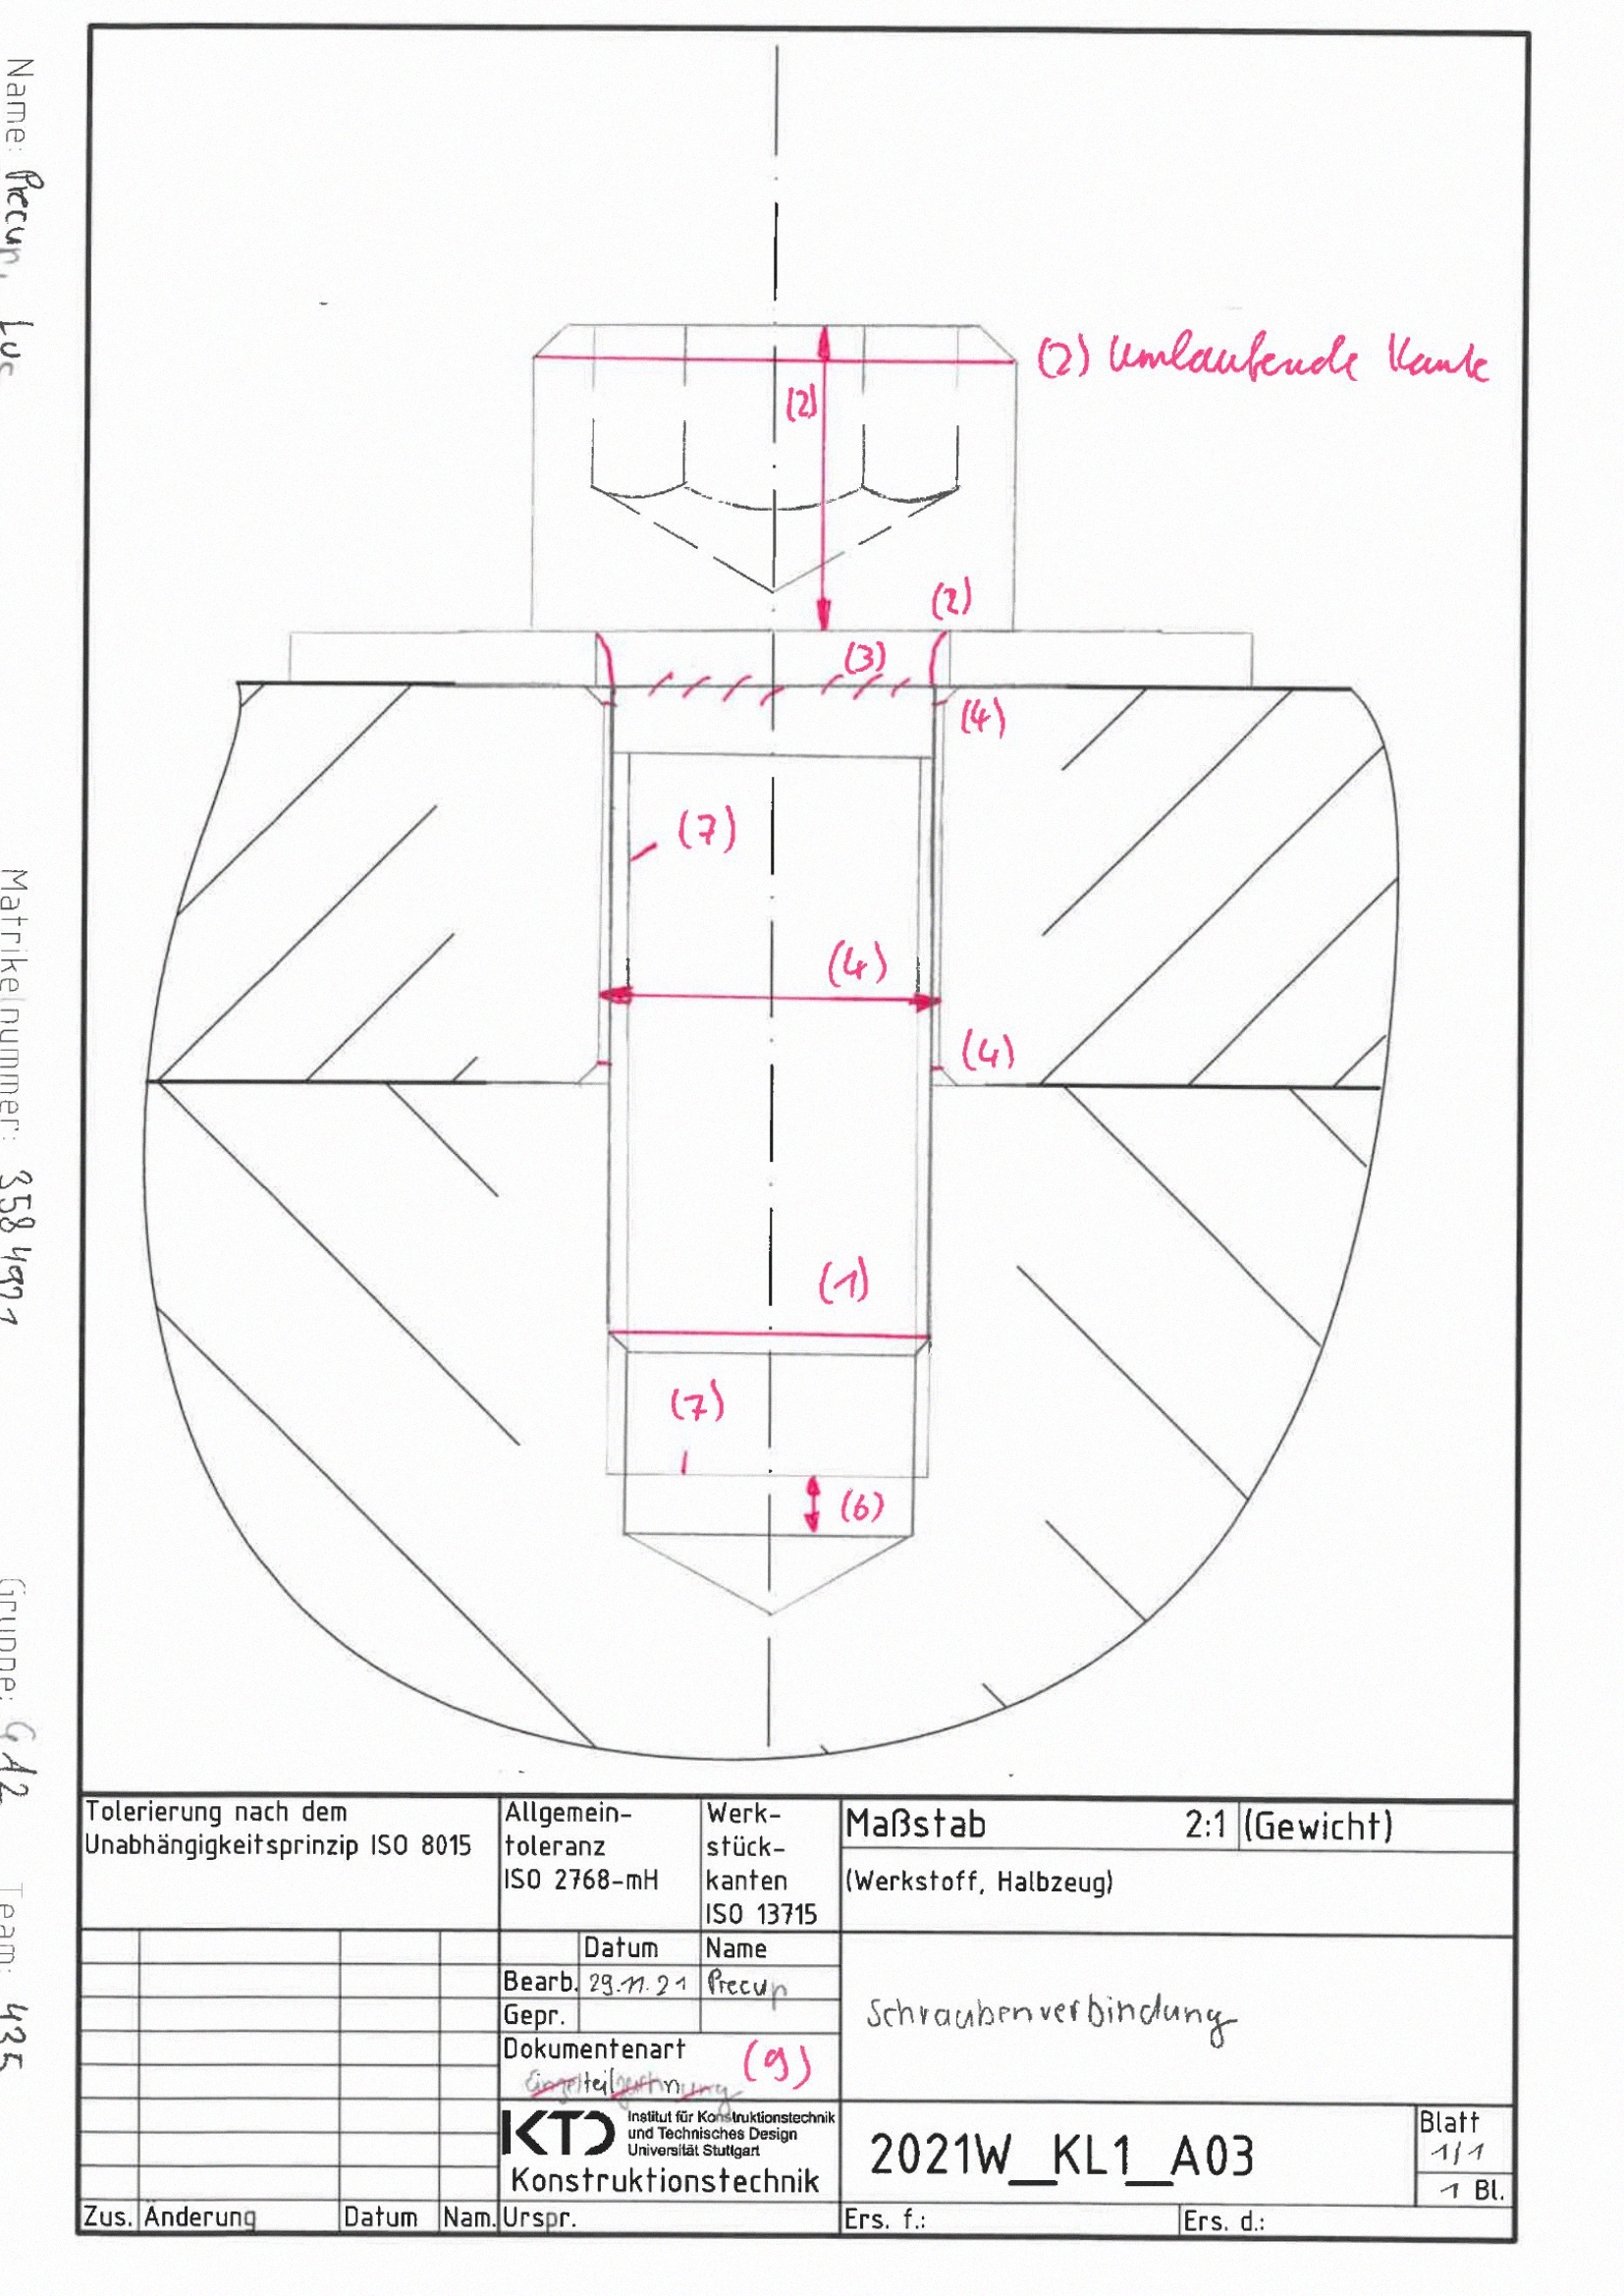 Name: Precup, Luc
Matrikelnummer: 3584971
Gruppe: GA2 Team: 435
(2) Umlaufende Kante
(2)
(2)
(3)
(4)
(7)
(4)
(4)
(1)
(7)
(6)
Tolerierung nach dem
Unabhängigkeitsprinzip ISO 8015
Allgemein-
toleranz
ISO 2768-mH
Werk-
stück-
kanten
ISO 13715
Maßstab 2:1 (Gewicht)
(Werkstoff, Halbzeug)
Datum Name
Bearb. 29.11.21 Precup
Gepr.
Dokumentenart (9)
Einzelteilzeichnung
Schraubenverbindung
KTD Institut für Konstruktionstechnik
und Technisches Design
Universität Stuttgart
Konstruktionstechnik
2021W_KL1_A03
Blatt
1/1
1 Bl.
Zus. Änderung Datum Nam. Urspr. Ers. f.: Ers. d.: